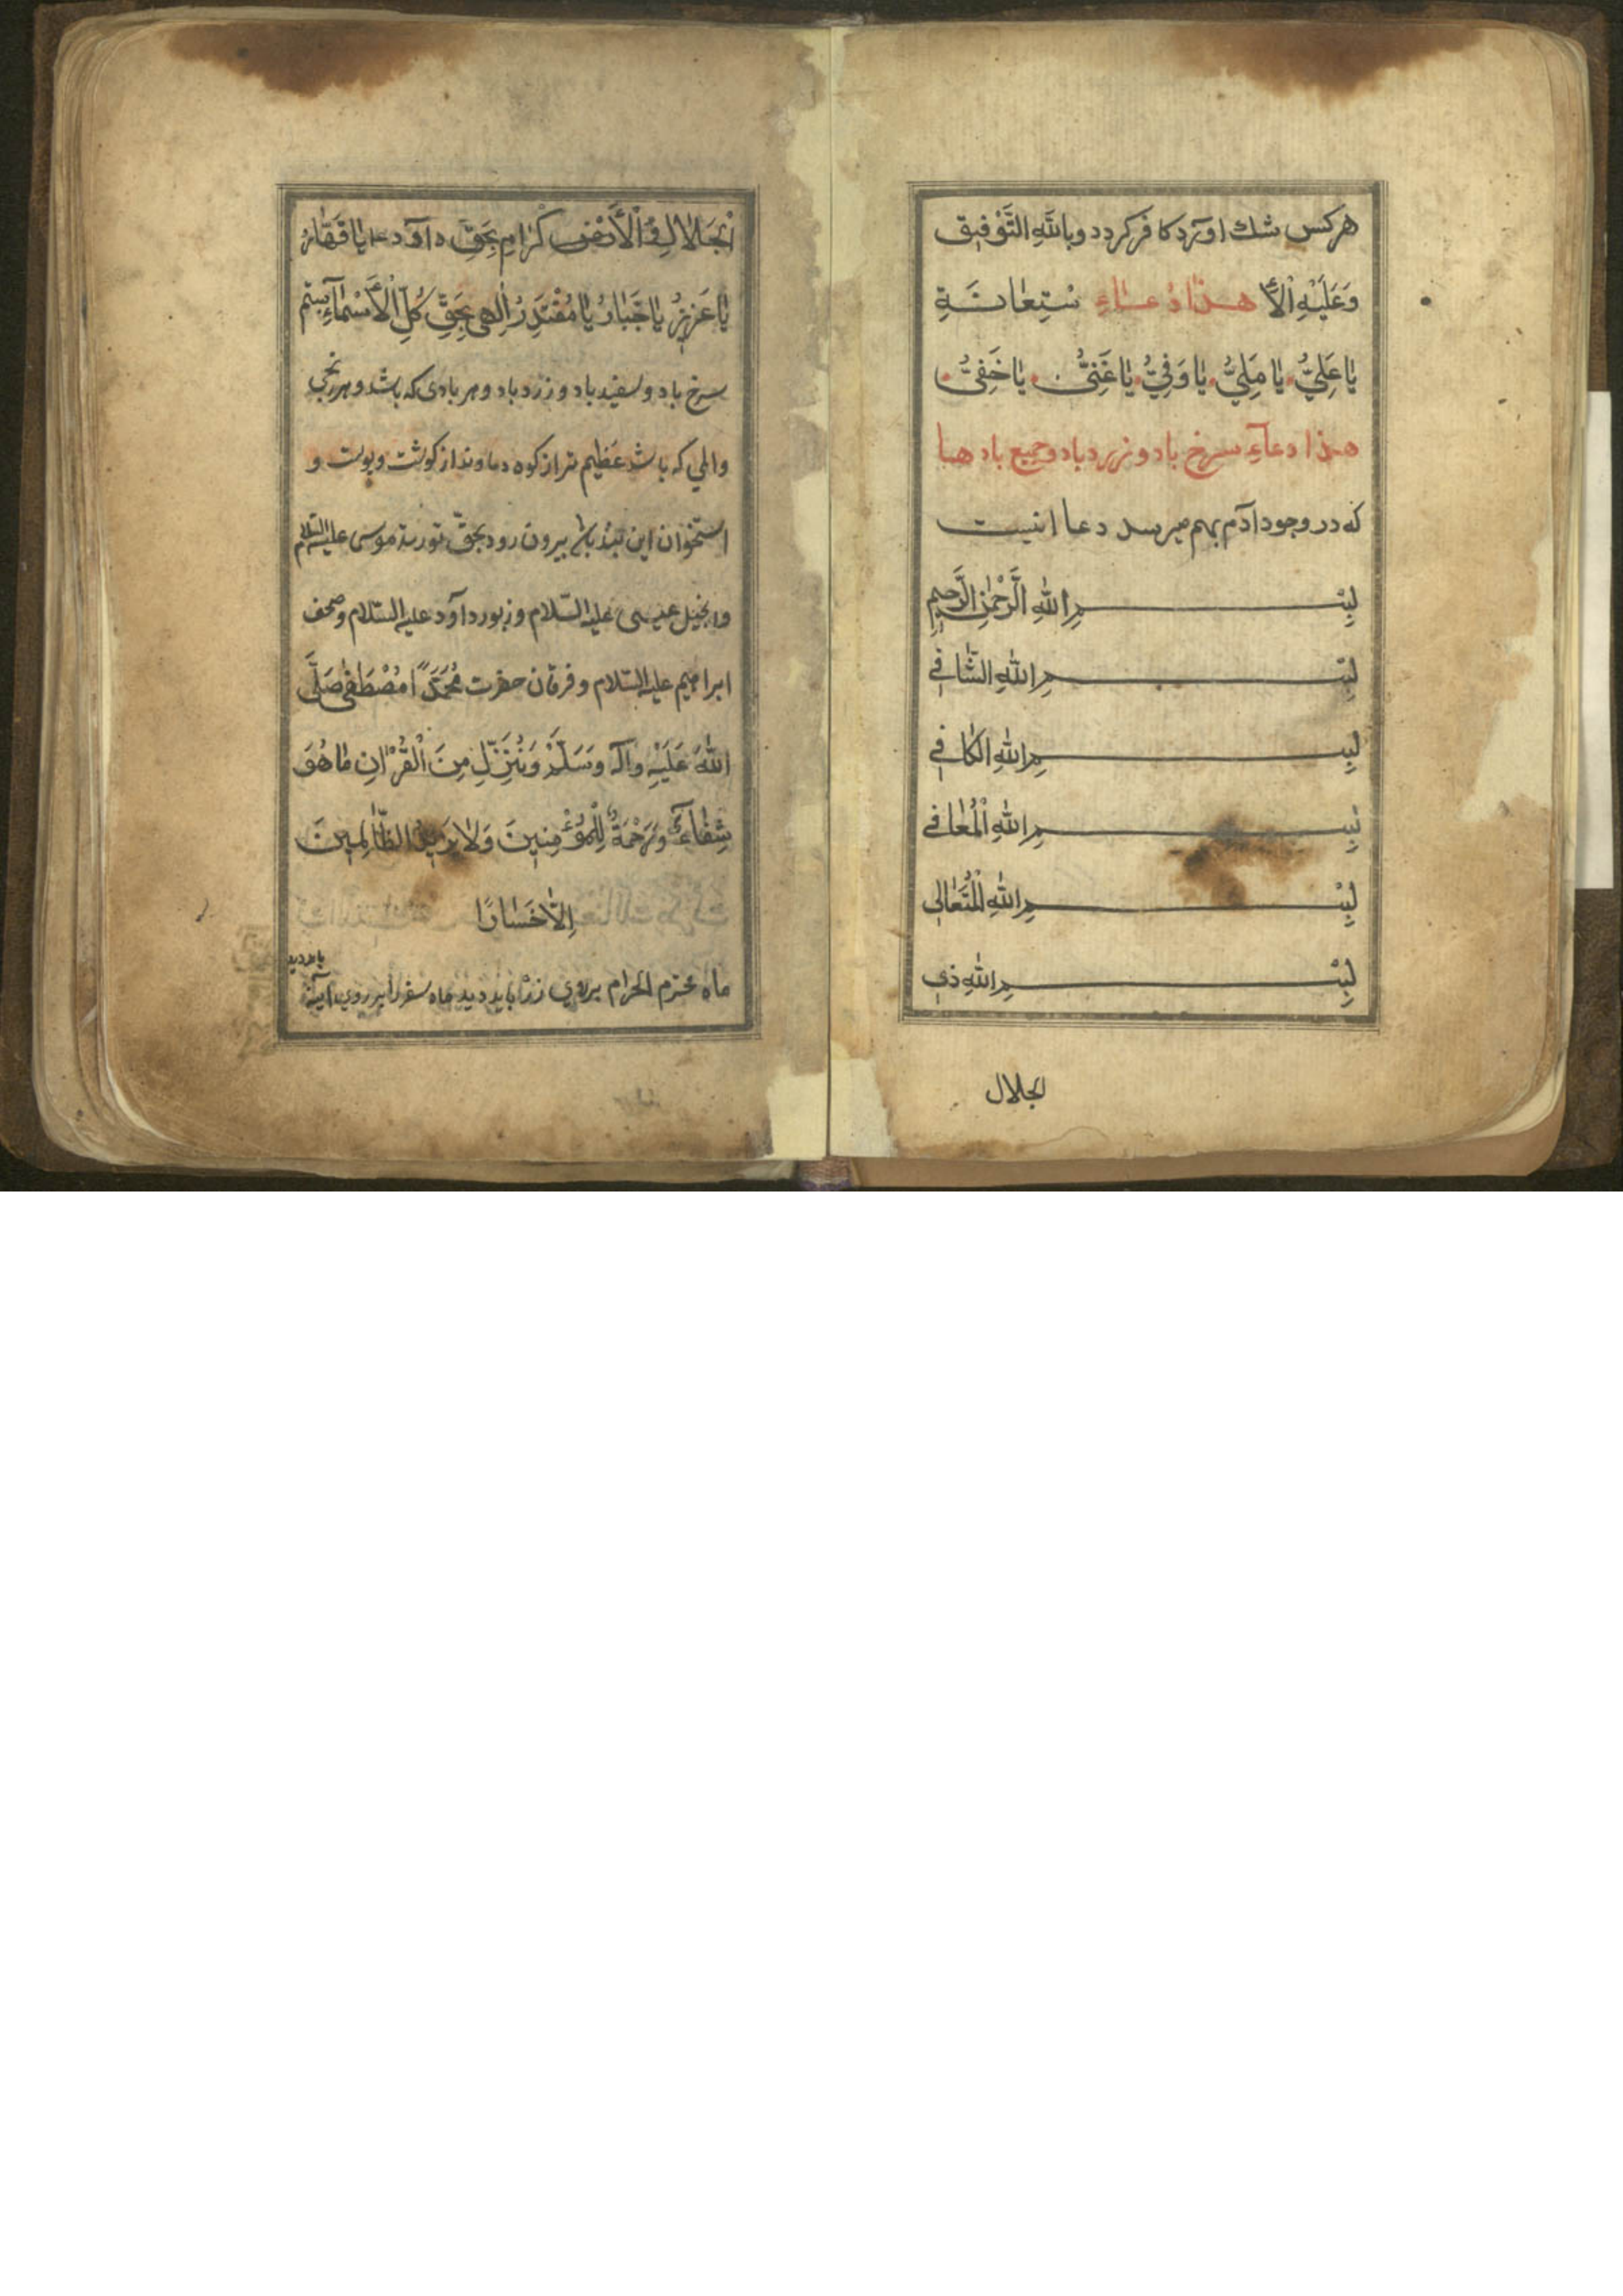 هرکس شك اورد کافر کردد وبالله التَّوْفیق
وَعَلَیْهِ الْاُ هذا دُعاءِ سْتِعانَةِ
یا عَلِیُّ یا مَلِیُّ یا وَفِیُّ یا غَنِیُّ یا خَفِیُّ
هذا دعاءِ سرخ باد و زرد باد و جمیع بادها
که در وجود ادم بهم میرسد دعا اینست
بِسْمِ اللهِ الرَّحْمٰنِ الرَّحیمِ
بِسْمِ اللهِ الشّافي
بِسْمِ اللهِ الکافي
بِسْمِ اللهِ الْمُعافي
بِسْمِ اللهِ الْمُتَعالي
بِسْمِ اللهِ ذي
الجلال
الْجَلالِ في الْأَرْضِ کْرامِ بِحَقِّ داود یا قَهّارُ
یا عَزیزُ یا جَبّارُ یا مُقْتَدِرُ اِلٰهي بِحَقِّ کُلِّ الْأَسْمآءِ بستم
سرخ باد و سفید باد و زرد باد و هر بادی که باشد و هر رنجی
والمي که باشد عَظیم تر از کوه دماوند از کوشت و پوست و
استخوان این بیرون رود بحقّ توریة موسی علیه السّلام
وانجیل عیسی علیه السّلام و زبور داود علیه السّلام و صحف
ابراهیم علیه السّلام و فرقان حضرت مُحَمَّدً امُصْطَفٰی صَلَّی
اللهُ عَلَیْهِ وآله وَسَلَّمْ وَنُنَزِّلِ مِنَ الْقُرْانِ ما هُوَ
شِفاءٌ وَرَحْمَةٌ لِلْمُؤْمِنینَ وَلا یَزیدُ الظّالِمینَ
اِلّا خَسارًا
ماه محرّم الحرام بروی زر باید دید ماه سفر را بر روی اینه
باید دید